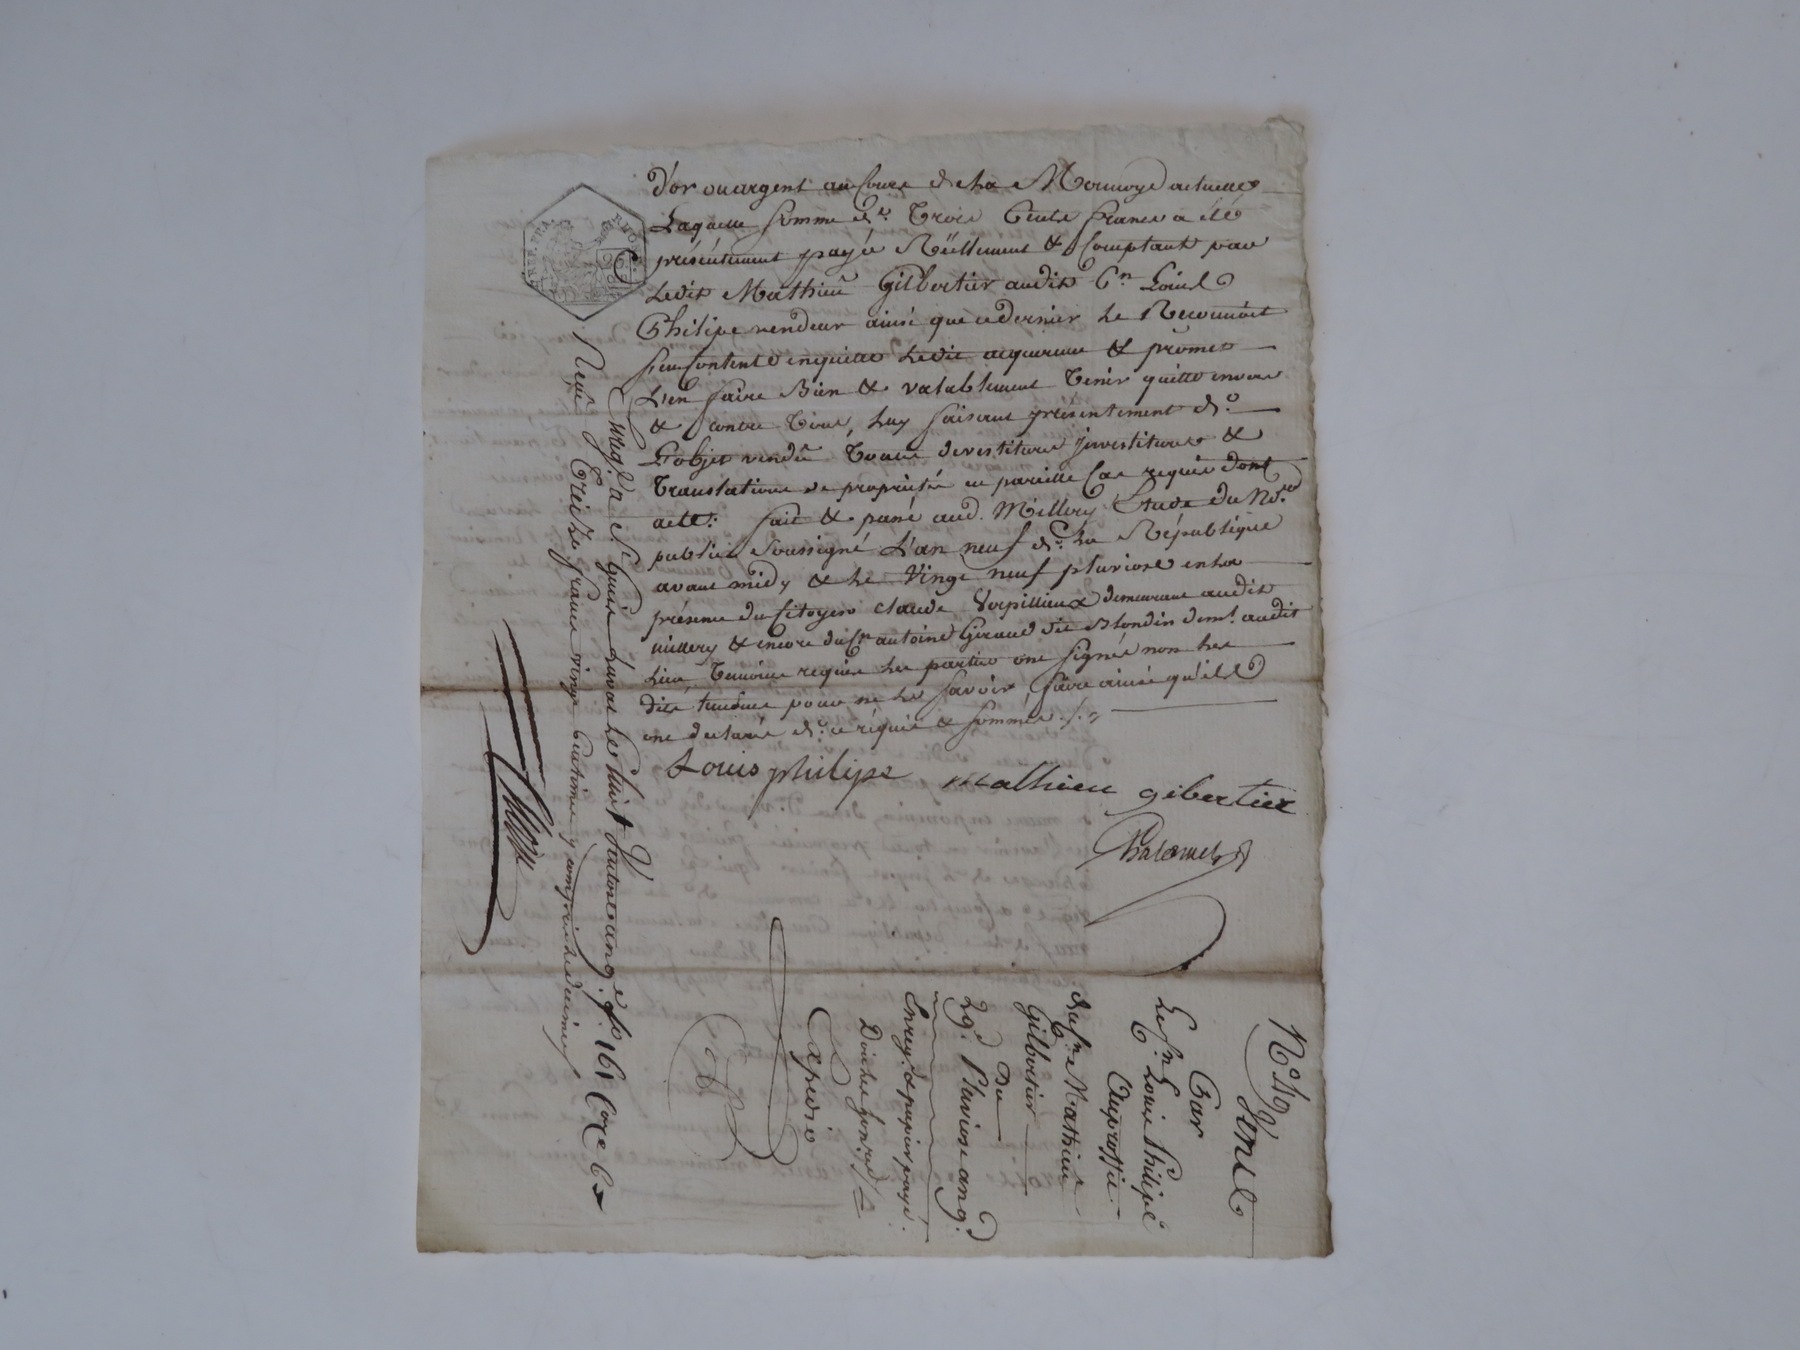 d'or ou argent au Cours de la Monnoye actuelle
Laquelle somme de Trois Cents francs a été
présentement payée Réellement & Comptant par
Ledit Mathieu Gilbertier audit Cn Louis
Philipe vendeur ainsi que ce dernier Le Reconnoit
s'en Contente en quitte Ledit acquereur & promet
L'en faire Bien & valablement Tenir quitte envers
& contre Tous, Luy faisant présentement de
L'objet vendu Toutes devestiture investiture &
Translations de propriété en pareille Cas requis dont
acte: fait & passé aud. Millery Etude du Nore
public Soussigné L'an neuf de La République
avant midy & Le Vingt neuf pluviose en la
présence du Citoyen Claude Vorpillieux demeurant audit
millery & encore du Cn antoine Giraud dit Blondin demt. audit
Lieu, Temoins requis Les parties ont signés non Les
dits temoins pour ne Le savoir faire ainsi qu'ils
ont declaré de ce réquis & sommés ./.
Louis philipe mathieu gibertier
Enreg. a St Genis Laval Le huit Ventose an 9. fo. 161 Core C.
Reçu Treize francs vingt Centimes y compris Le decime
No. 49
Vente
Par
Le Cn Louis Philipe
Au proffit
du Cn Mathieu
Gilbertier
Du
29. Pluviose an 9.
Enregt. & papier payé.
Doit Les honres
Expedié